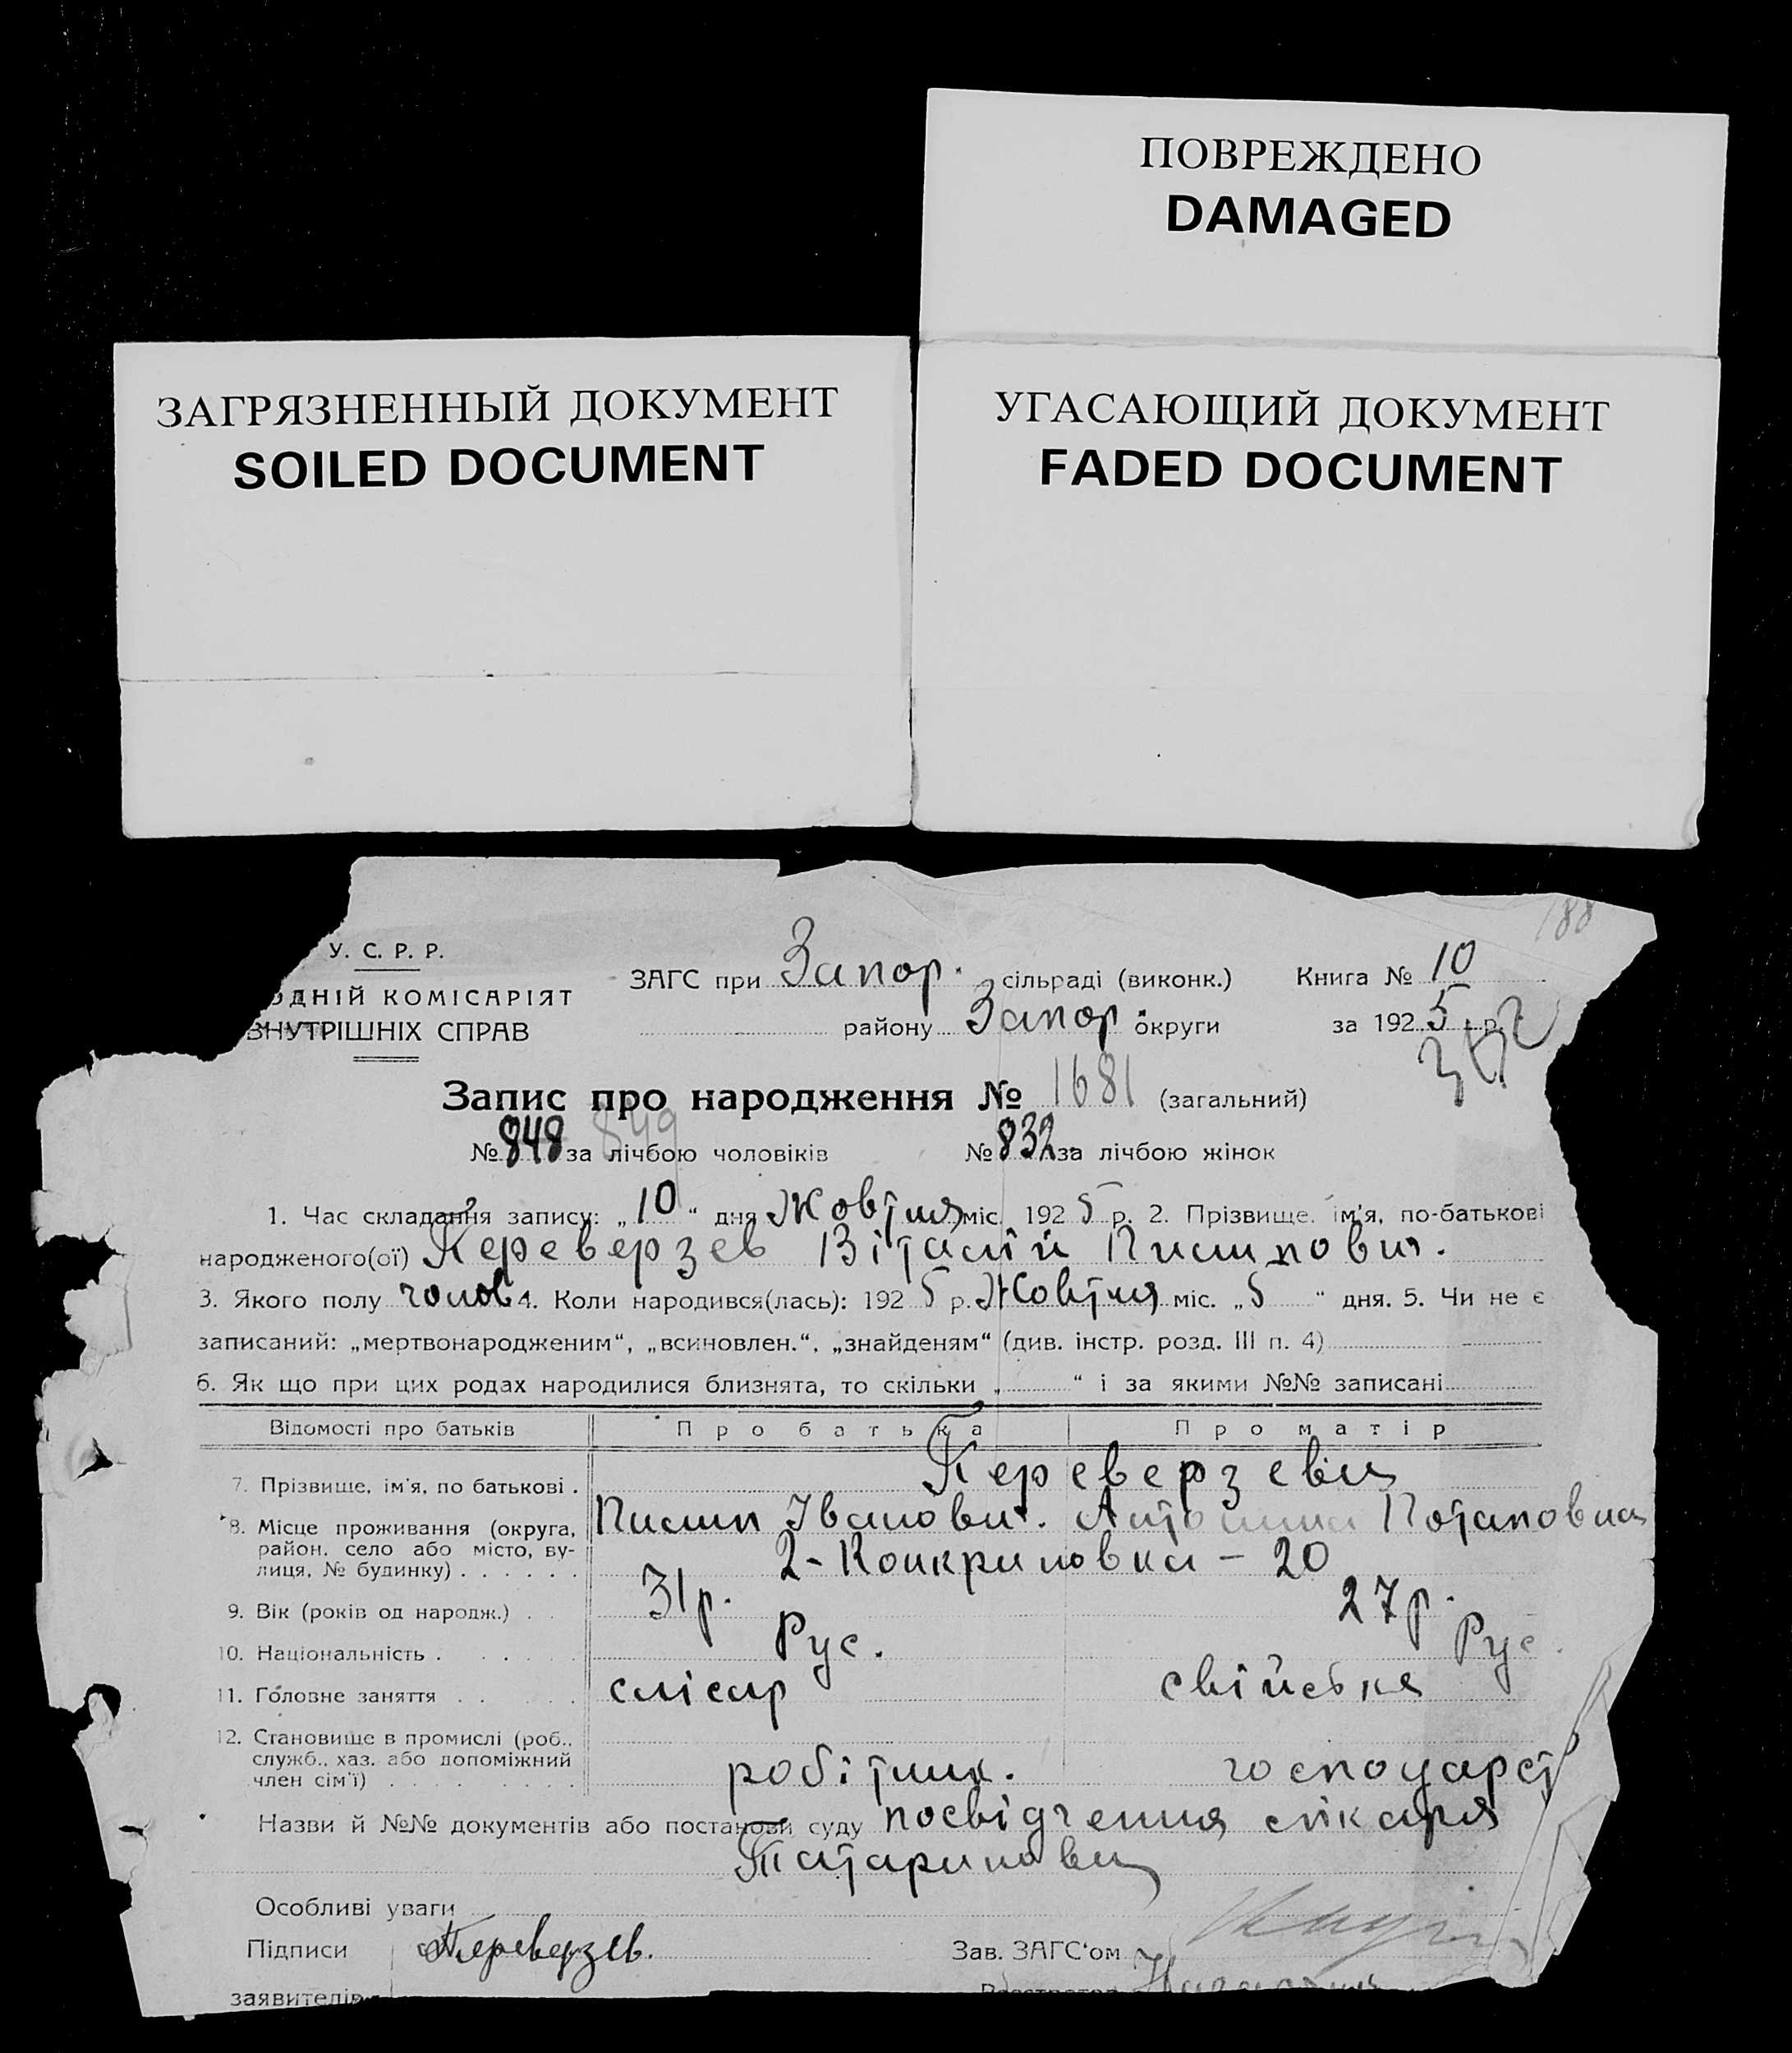 ПОВРЕЖДЕНО
DAMAGED
ЗАГРЯЗНЕННЫЙ ДОКУМЕНТ
SOILED DOCUMENT
УГАСАЮЩИЙ ДОКУМЕНТ
FADED DOCUMENT
188
У. С. Р. Р.
ОДНІЙ КОМІСАРІЯТ
ВНУТРІШНІХ СПРАВ
ЗАГС при Запор. сільраді (виконк.) Книга № 10
району Запор. округи за 1925 р.
Запис про народження № 1681 (загальний)
№ 848 849 за лічбою чоловіків № 832 за лічбою жінок
1. Час складання запису: „10“ дня Жовтня міс. 1925 р. 2. Прізвище, ім'я, по-батькові
народженого(ої) Переверзев Віталій Пилипович.
3. Якого полу чолов. 4. Коли народився(лась): 1925 р. Жовтня міс. „5“ дня. 5. Чи не є
записаний: „мертвонародженим“, „всиновлен.“, „знайденям“ (див. інстр. розд. III п. 4)
6. Як що при цих родах народилися близнята, то скільки „ “ і за якими №№ записані
Відомості про батьків Про батька Про матір
7. Прізвище, ім'я, по батькові . Переверзеви
Пилип Іванович. Антонина Потаповна
8. Місце проживання (округа,
район, село або місто, ву-
лиця, № будинку) . . . . . . 2-Конкриновка - 20
9. Вік (років од народж.) . . 31р. 27р.
10. Національність . . . . . . Рус. Рус.
11. Головне заняття . . . . слісар свійське
12. Становище в промислі (роб.,
служб., хаз. або допоміжний
член сім'ї) . . . . . . . . . робітник. господарст
Назви й №№ документів або постанови суду посвідчення лікаря
Татаринова
Особливі уваги
Підписи Переверзев. Зав. ЗАГС'ом
заявителів Реєстратор